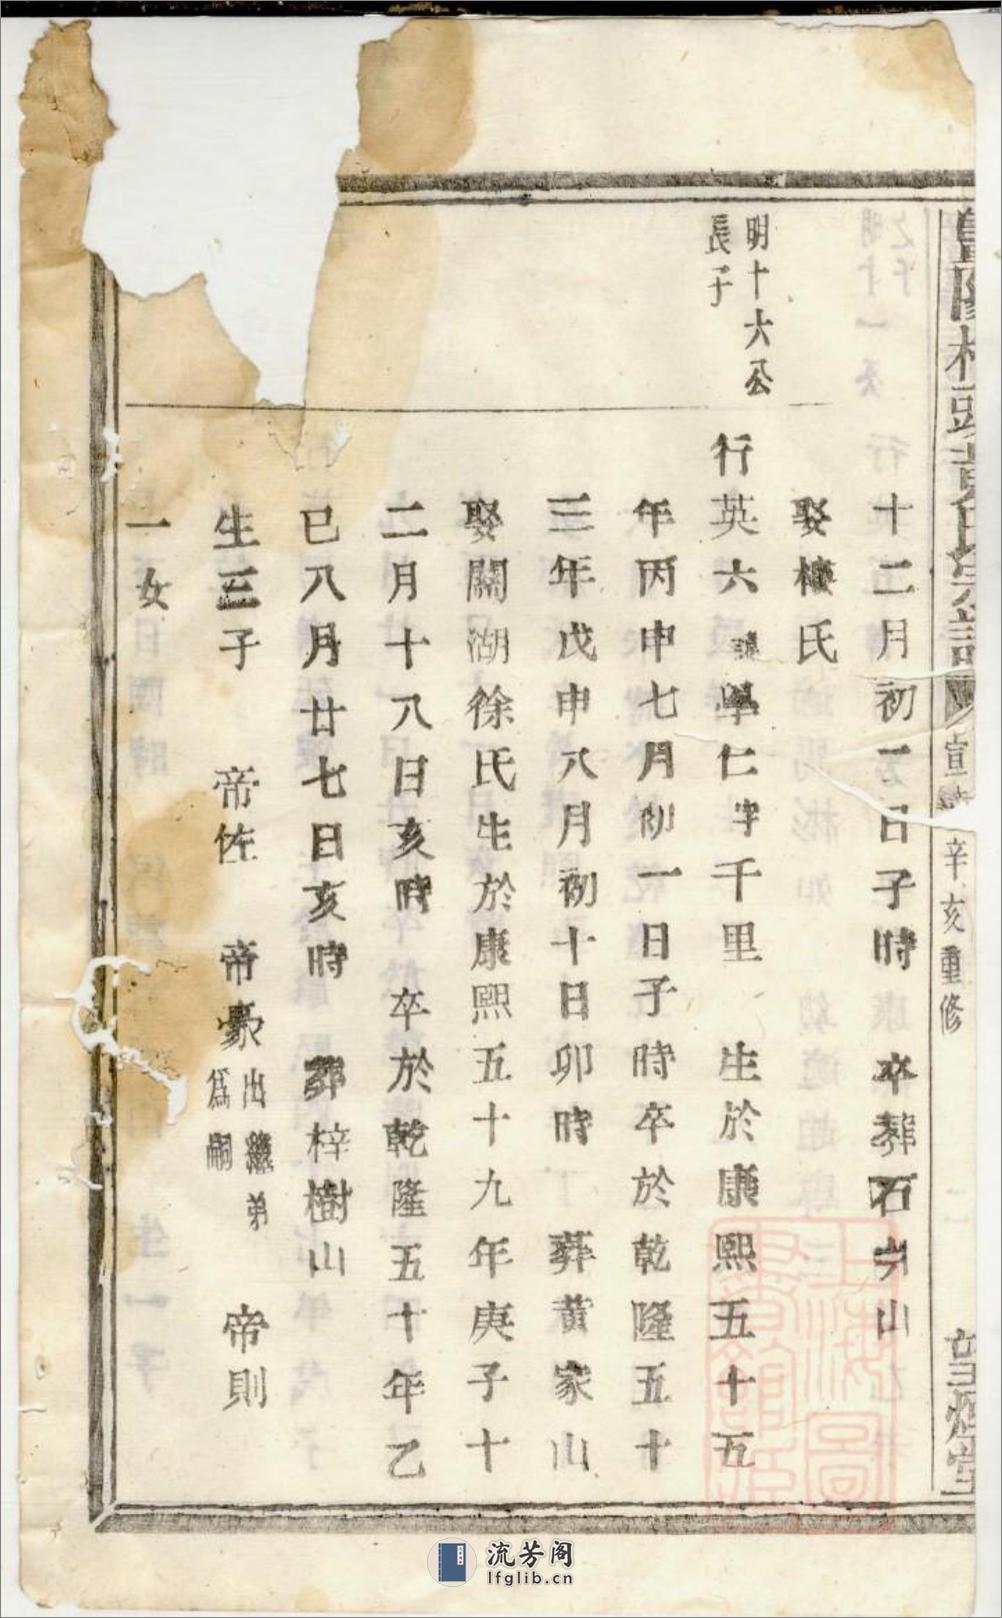 暨陽頭黃氏宗譜
宣統辛亥重修
望煙堂
十二月初一日子時 卒葬石山
娶樓氏
明十六公
長子
行英六 諱學仁字千里 生於康熙五十五
年丙申七月初一日子時卒於乾隆五十
三年戊申八月初十日卯時 葬黃家山
娶關湖徐氏生於康熙五十九年庚子十
二月十八日亥時 卒於乾隆五十年乙
巳八月廿七日亥時 葬梓樹山
生三子 帝佐 帝豪 出繼弟爲嗣 帝則
一女
上海圖書館藏
流芳阁
lfglib.cn